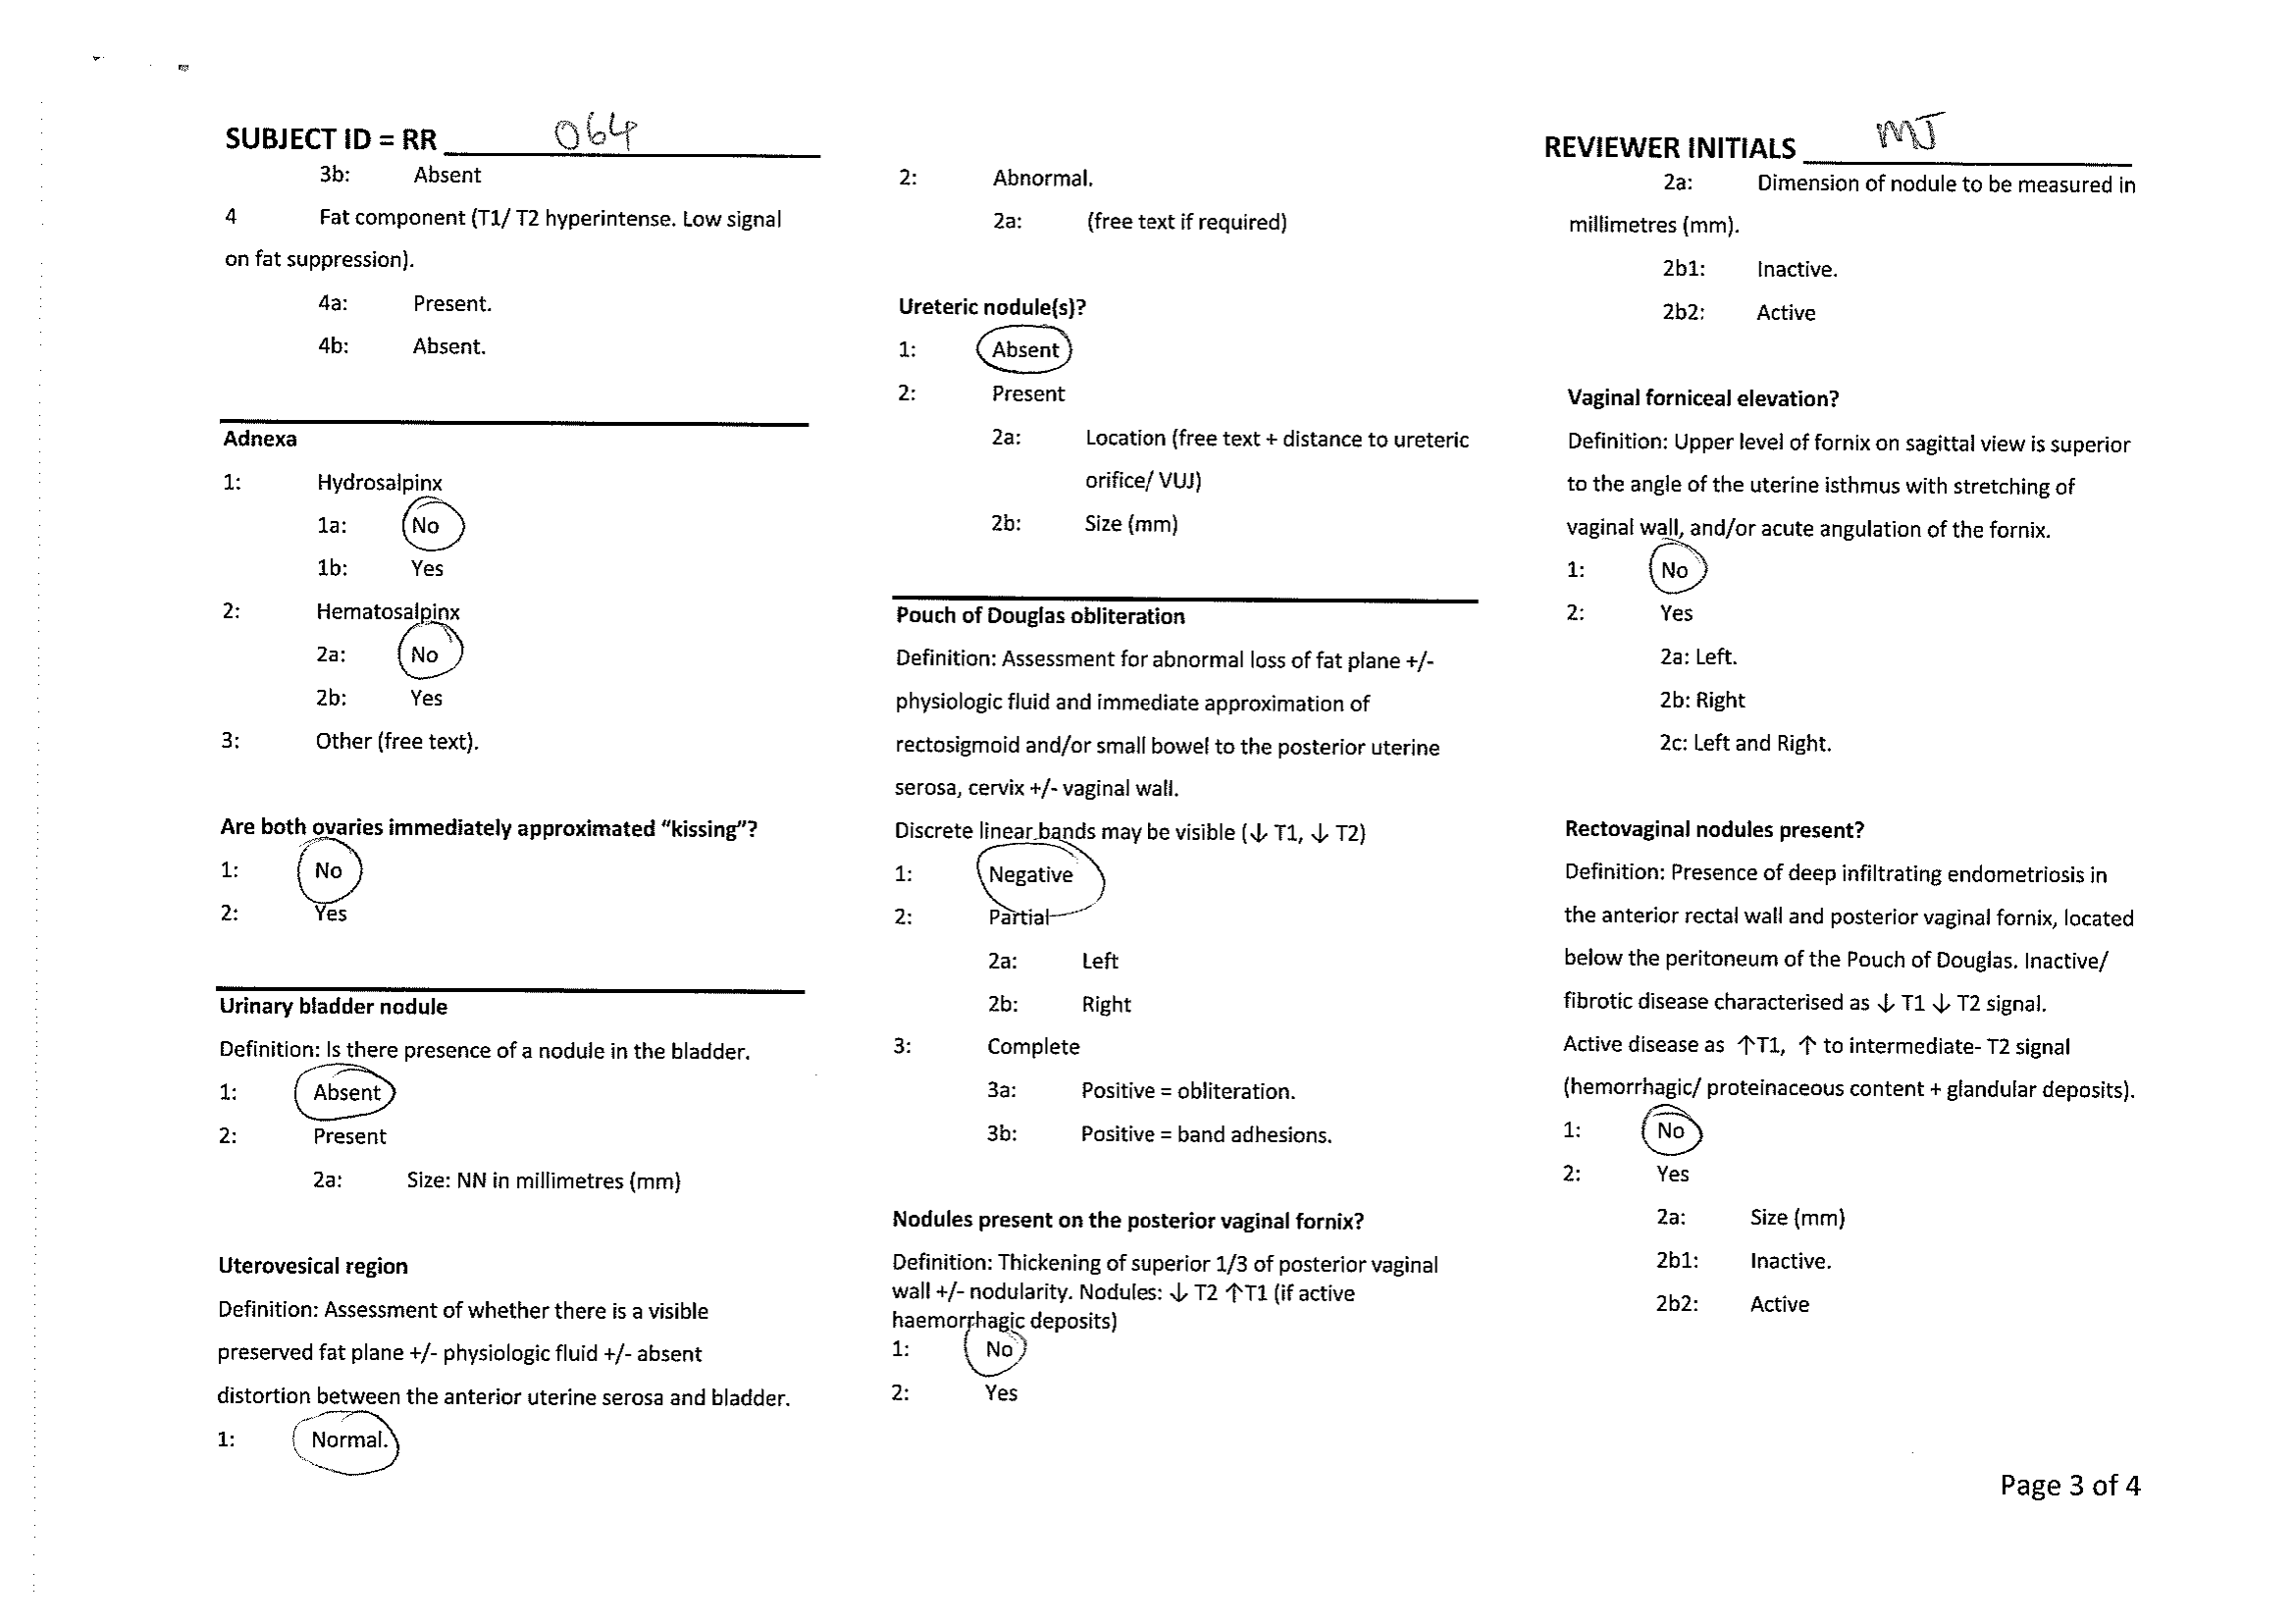 SUBJECT ID = RR 064
3b: Absent
4 Fat component (T1/ T2 hyperintense. Low signal
on fat suppression).
4a: Present.
4b: Absent.
Adnexa
1: Hydrosalpinx
1a: No
1b: Yes
2: Hematosalpinx
2a: No
2b: Yes
3: Other (free text).
Are both ovaries immediately approximated “kissing”?
1: No
2: Yes
Urinary bladder nodule
Definition: Is there presence of a nodule in the bladder.
1: Absent
2: Present
2a: Size: NN in millimetres (mm)
Uterovesical region
Definition: Assessment of whether there is a visible
preserved fat plane +/- physiologic fluid +/- absent
distortion between the anterior uterine serosa and bladder.
1: Normal.
2: Abnormal.
2a: (free text if required)
Ureteric nodule(s)?
1: Absent
2: Present
2a: Location (free text + distance to ureteric
orifice/ VUJ)
2b: Size (mm)
Pouch of Douglas obliteration
Definition: Assessment for abnormal loss of fat plane +/-
physiologic fluid and immediate approximation of
rectosigmoid and/or small bowel to the posterior uterine
serosa, cervix +/- vaginal wall.
Discrete linear bands may be visible (↓ T1, ↓ T2)
1: Negative
2: Partial
2a: Left
2b: Right
3: Complete
3a: Positive = obliteration.
3b: Positive = band adhesions.
Nodules present on the posterior vaginal fornix?
Definition: Thickening of superior 1/3 of posterior vaginal
wall +/- nodularity. Nodules: ↓ T2 ↑T1 (if active
haemorrhagic deposits)
1: No
2: Yes
REVIEWER INITIALS MJ
2a: Dimension of nodule to be measured in
millimetres (mm).
2b1: Inactive.
2b2: Active
Vaginal forniceal elevation?
Definition: Upper level of fornix on sagittal view is superior
to the angle of the uterine isthmus with stretching of
vaginal wall, and/or acute angulation of the fornix.
1: No
2: Yes
2a: Left.
2b: Right
2c: Left and Right.
Rectovaginal nodules present?
Definition: Presence of deep infiltrating endometriosis in
the anterior rectal wall and posterior vaginal fornix, located
below the peritoneum of the Pouch of Douglas. Inactive/
fibrotic disease characterised as ↓ T1 ↓ T2 signal.
Active disease as ↑T1, ↑ to intermediate- T2 signal
(hemorrhagic/ proteinaceous content + glandular deposits).
1: No
2: Yes
2a: Size (mm)
2b1: Inactive.
2b2: Active
Page 3 of 4